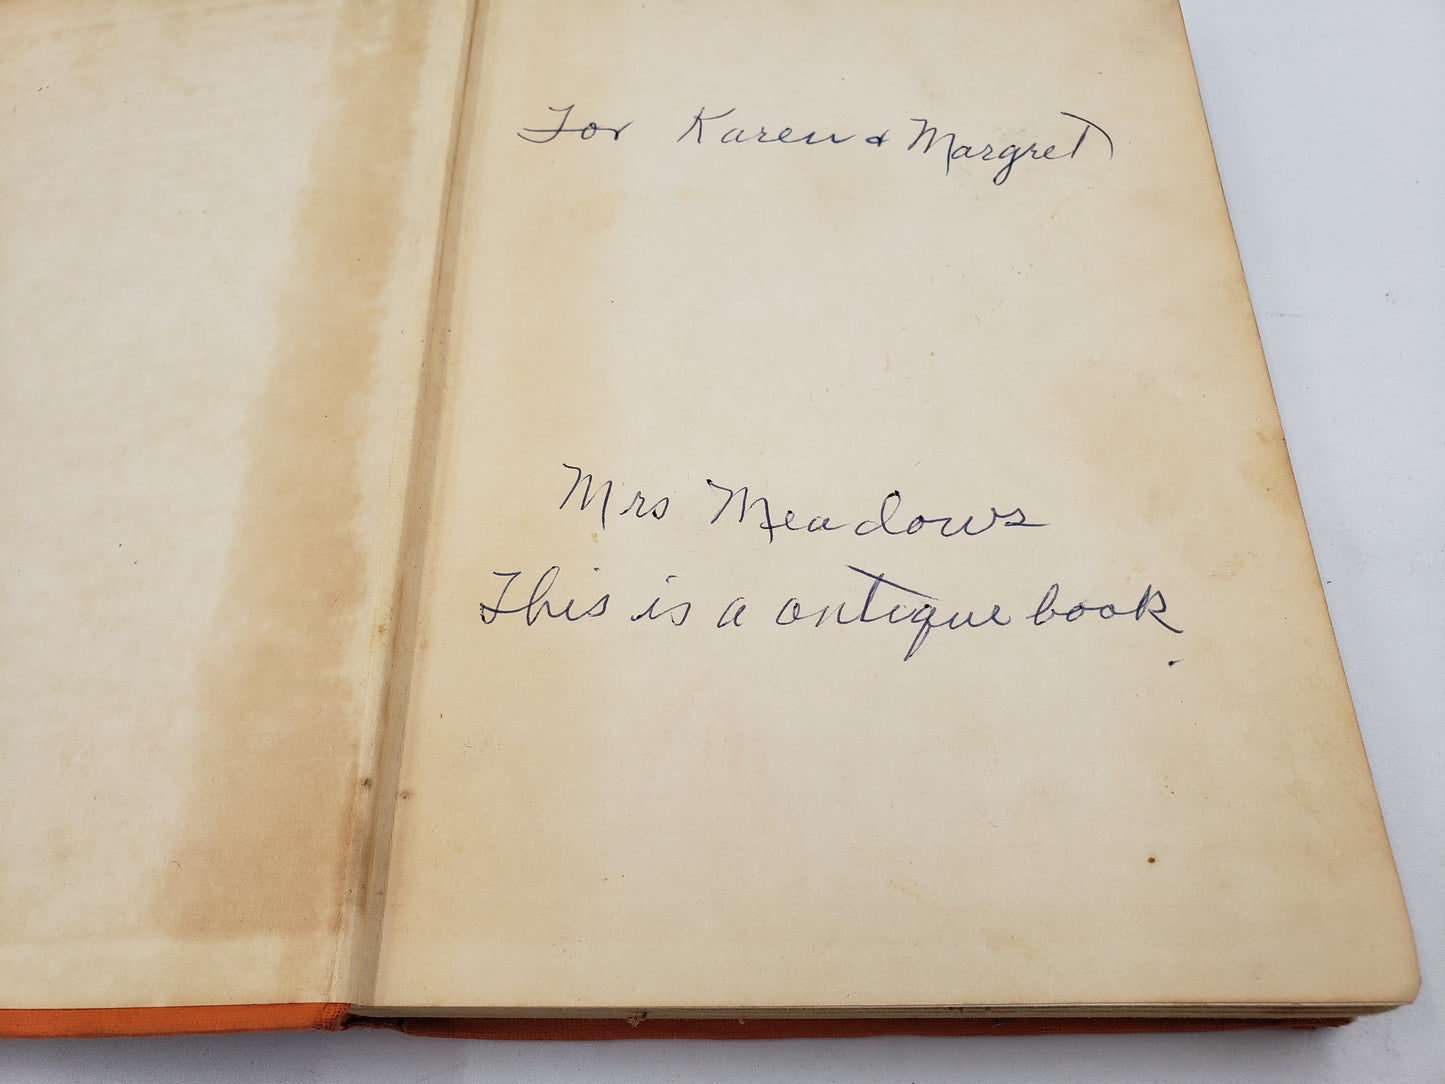 For Karen & Margret
Mrs Meadows
This is a antique book.